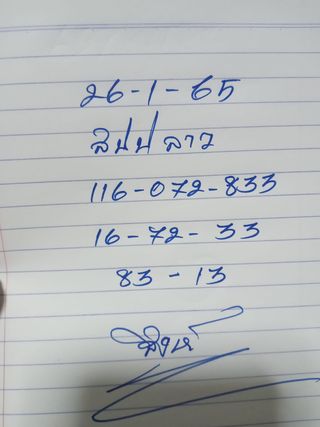 26-1-65
สปป ลาว
116-072-833
16-72-33
83-13